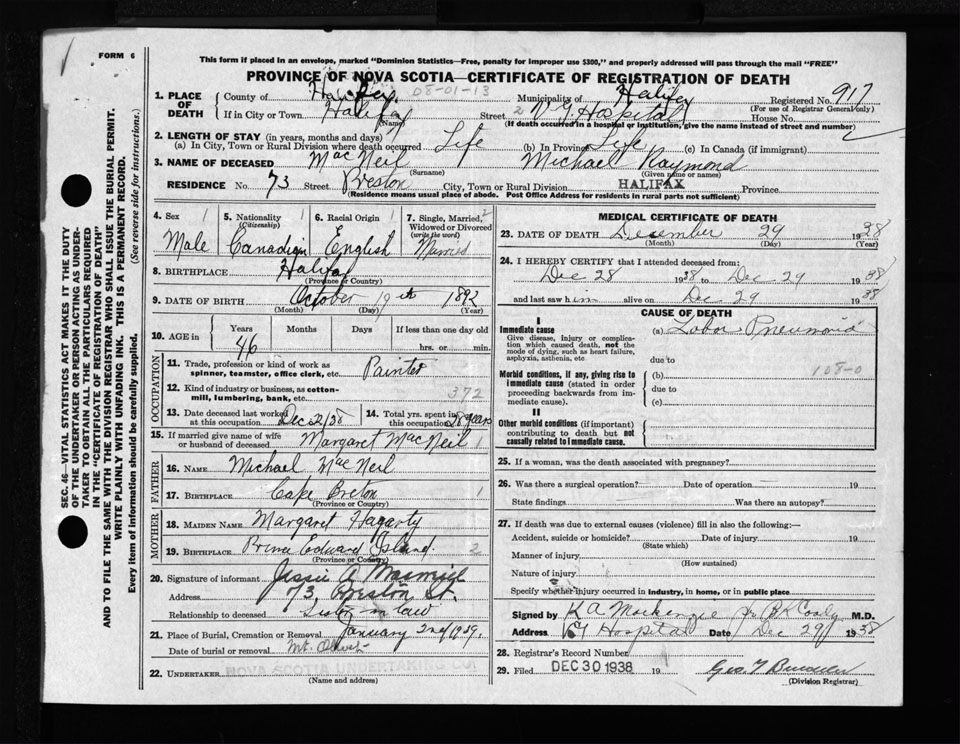 FORM 6
This form if placed in an envelope, marked "Dominion Statistics—Free, penalty for improper use $300," and properly addressed will pass through the mail "FREE"
PROVINCE OF NOVA SCOTIA—CERTIFICATE OF REGISTRATION OF DEATH
SEC. 46—VITAL STATISTICS ACT MAKES IT THE DUTY
OF THE UNDERTAKER OR PERSON ACTING AS UNDER-
TAKER TO OBTAIN ALL THE PARTICULARS REQUIRED
IN THE "CERTIFICATE OF REGISTRATION OF DEATH"
AND TO FILE THE SAME WITH THE DIVISION REGISTRAR WHO SHALL ISSUE THE BURIAL PERMIT.
WRITE PLAINLY WITH UNFADING INK. THIS IS A PERMANENT RECORD.
Every item of information should be carefully supplied. (See reverse side for instructions.)
1. PLACE OF DEATH County of Halifax 08-01-13 Municipality of Halifax Registered No. 917
(For use of Registrar General only)
If in City or Town Halifax (Name) Street 2 V G Hospital House No.
(If death occurred in a hospital or institution, give the name instead of street and number)
2. LENGTH OF STAY (in years, months and days)
(a) In City, Town or Rural Division where death occurred Life (b) In Province Life (c) In Canada (if immigrant)
3. NAME OF DECEASED MacNeil (Surname) Michael Raymond (Given name or names)
RESIDENCE No. 73 Street Preston City, Town or Rural Division HALIFAX Province
(Residence means usual place of abode. Post Office Address for residents in rural parts not sufficient)
4. Sex 1 Male
5. Nationality (Citizenship) 1 Canadian
6. Racial Origin 1 English
7. Single, Married, Widowed or Divorced (write the word) 2 Married
8. BIRTHPLACE Halifax (Province or Country)
9. DATE OF BIRTH October 19th 1892
(Month) (Day) (Year)
10. AGE in Years Months Days If less than one day old
46 hrs. or min.
OCCUPATION
11. Trade, profession or kind of work as spinner, teamster, office clerk, etc. Painter
12. Kind of industry or business, as cotton-mill, lumbering, bank, etc. 372
13. Date deceased last worked at this occupation Dec 2/38
14. Total yrs. spent in this occupation 28 years
15. If married give name of wife or husband of deceased Margaret MacNeil 1
FATHER
16. NAME Michael MacNeil
17. BIRTHPLACE Cape Breton 1
(Province or Country)
MOTHER
18. MAIDEN NAME Margaret Hagarty
19. BIRTHPLACE Prince Edward Island. 2
(Province or Country)
20. Signature of informant Jessie A
Address 73 Preston St.
Relationship to deceased Sister in law
21. Place of Burial, Cremation or Removal January 2nd 1939.
Date of burial or removal Mt. Olivet
22. UNDERTAKER NOVA SCOTIA UNDERTAKING CO
(Name and address)
MEDICAL CERTIFICATE OF DEATH
23. DATE OF DEATH December 29 1938
(Month) (Day) (Year)
24. I HEREBY CERTIFY that I attended deceased from:
Dec 28 1938 to Dec 29 1938
and last saw him alive on Dec 29 1938
CAUSE OF DEATH
I
Immediate cause (a) Lobar Pneumonia
Give disease, injury or complica-
tion which caused death, not the
mode of dying, such as heart failure,
asphyxia, asthenia, etc due to
Morbid conditions, if any, giving rise to (b) 108-0
immediate cause (stated in order due to
proceeding backwards from im-
mediate cause). (c)
II
Other morbid conditions (if important)
contributing to death but not
causally related to immediate cause.
25. If a woman, was the death associated with pregnancy?
26. Was there a surgical operation? Date of operation 19
State findings Was there an autopsy?
27. If death was due to external causes (violence) fill in also the following:—
Accident, suicide or homicide? Date of injury 19
(State which)
Manner of injury
(How sustained)
Nature of injury
Specify whether injury occurred in industry, in home, or in public place
Signed by K A Mackenzie M.D.
Address V G Hospital Date Dec 29 1938
28. Registrar's Record Number
29. Filed DEC 30 1938 19
(Division Registrar)